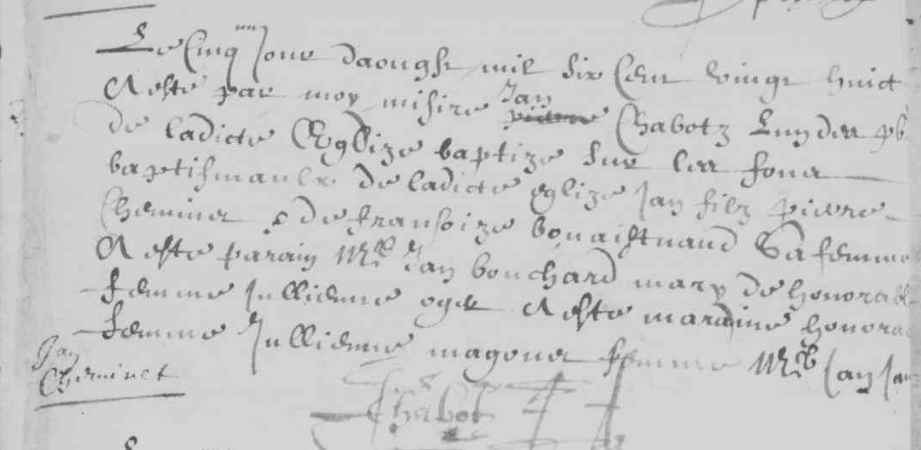 Le Cinq^me Jour daougst mil six Cent vingt huict
A este par moy misire Jan pierre Chabotz Lun des pb
de ladicte Esglize baptize sur les fons
baptismaulx de ladicte eglize Jan filz pierre
Cheminet & de fransoize sa femme
A este parain M^e Jan bouchard mary de honorabl
femme Jullienne oger A este maraine honora
femme Jullienne magonet femme M^e Jan Jan
Jan
Cheminet
Chabot